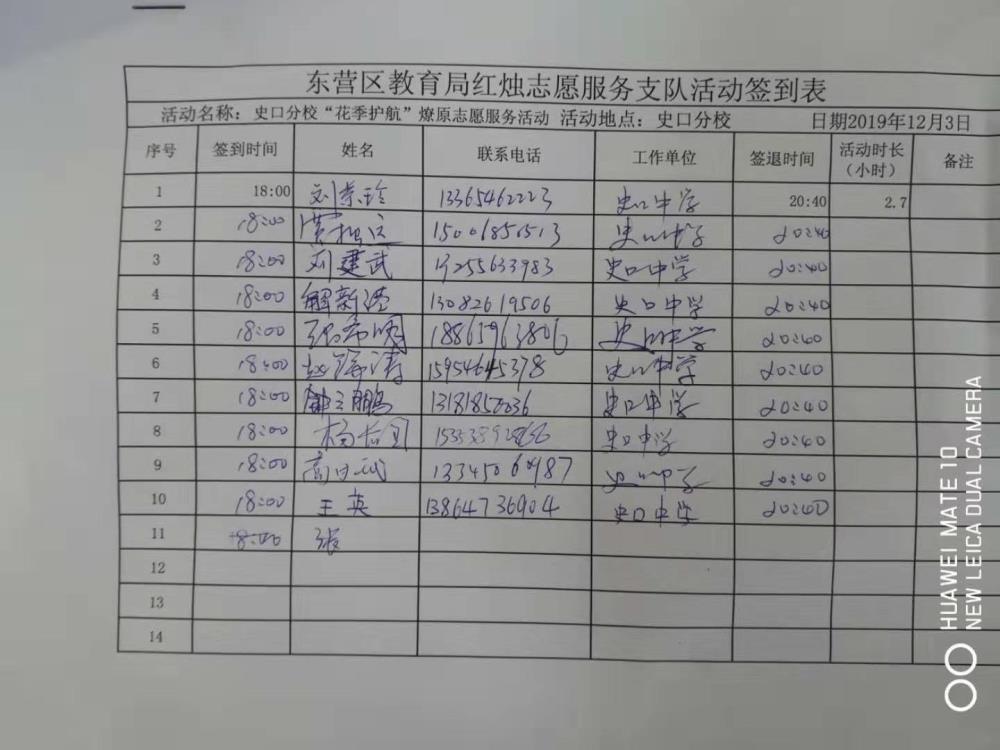 东营区教育局红烛志愿服务支队活动签到表
活动名称：史口分校“花季护航”燎原志愿服务活动 活动地点：史口分校 日期2019年12月3日
序号 签到时间 姓名 联系电话 工作单位 签退时间 活动时长（小时） 备注
1 18:00 刘荣珍 13365462223 史口中学 20:40 2.7
2 18:00 史口中学 20:40
3 18:00 刘建武 史口中学 20:40
4 18:00 解新港 13082619506 史口中学 20:40
5 18:00 18865963806 史口中学 20:40
6 18:00 15954645378 史口中学 20:40
7 18:00 13181850036 史口中学 20:40
8 18:00 史口中学 20:40
9 18:00 史口中学 20:40
10 18:00 王英 13864736904 史口中学 20:40
11 18:00 张
12
13
14
HUAWEI MATE 10
NEW LEICA DUAL CAMERA